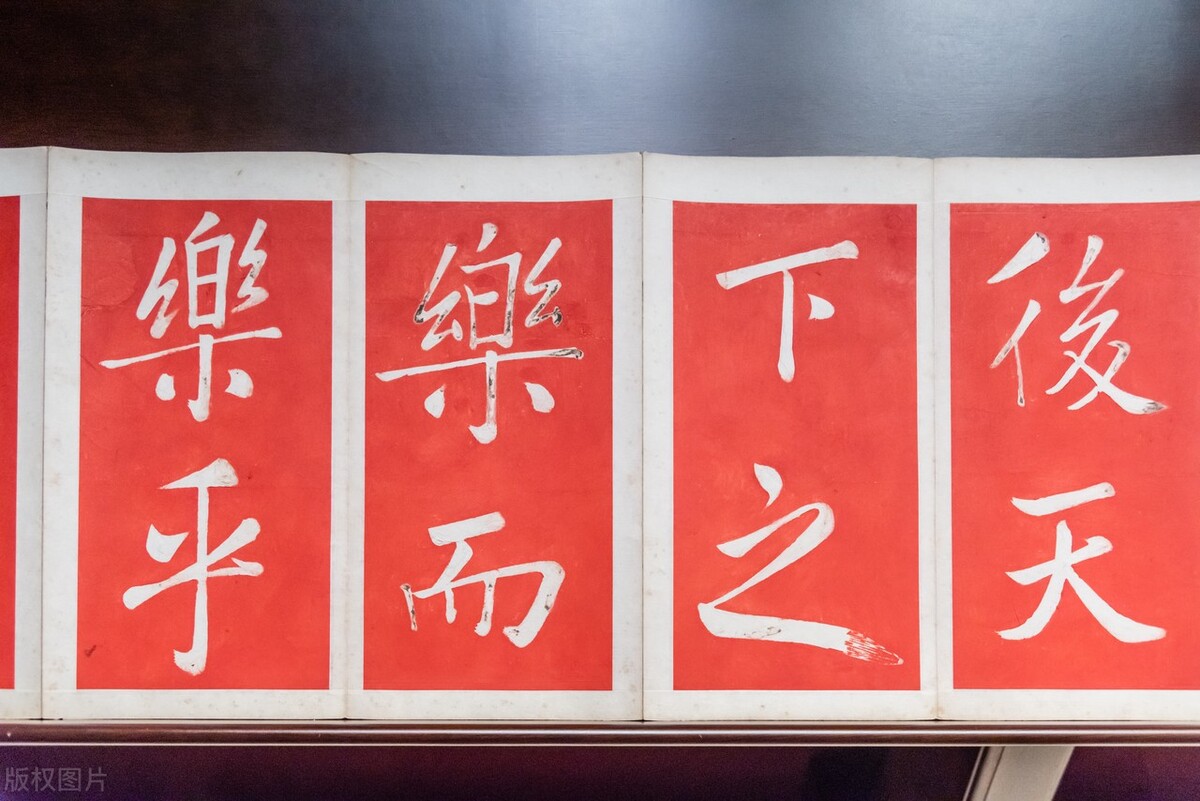 後天
下之
樂而
樂乎
版权图片